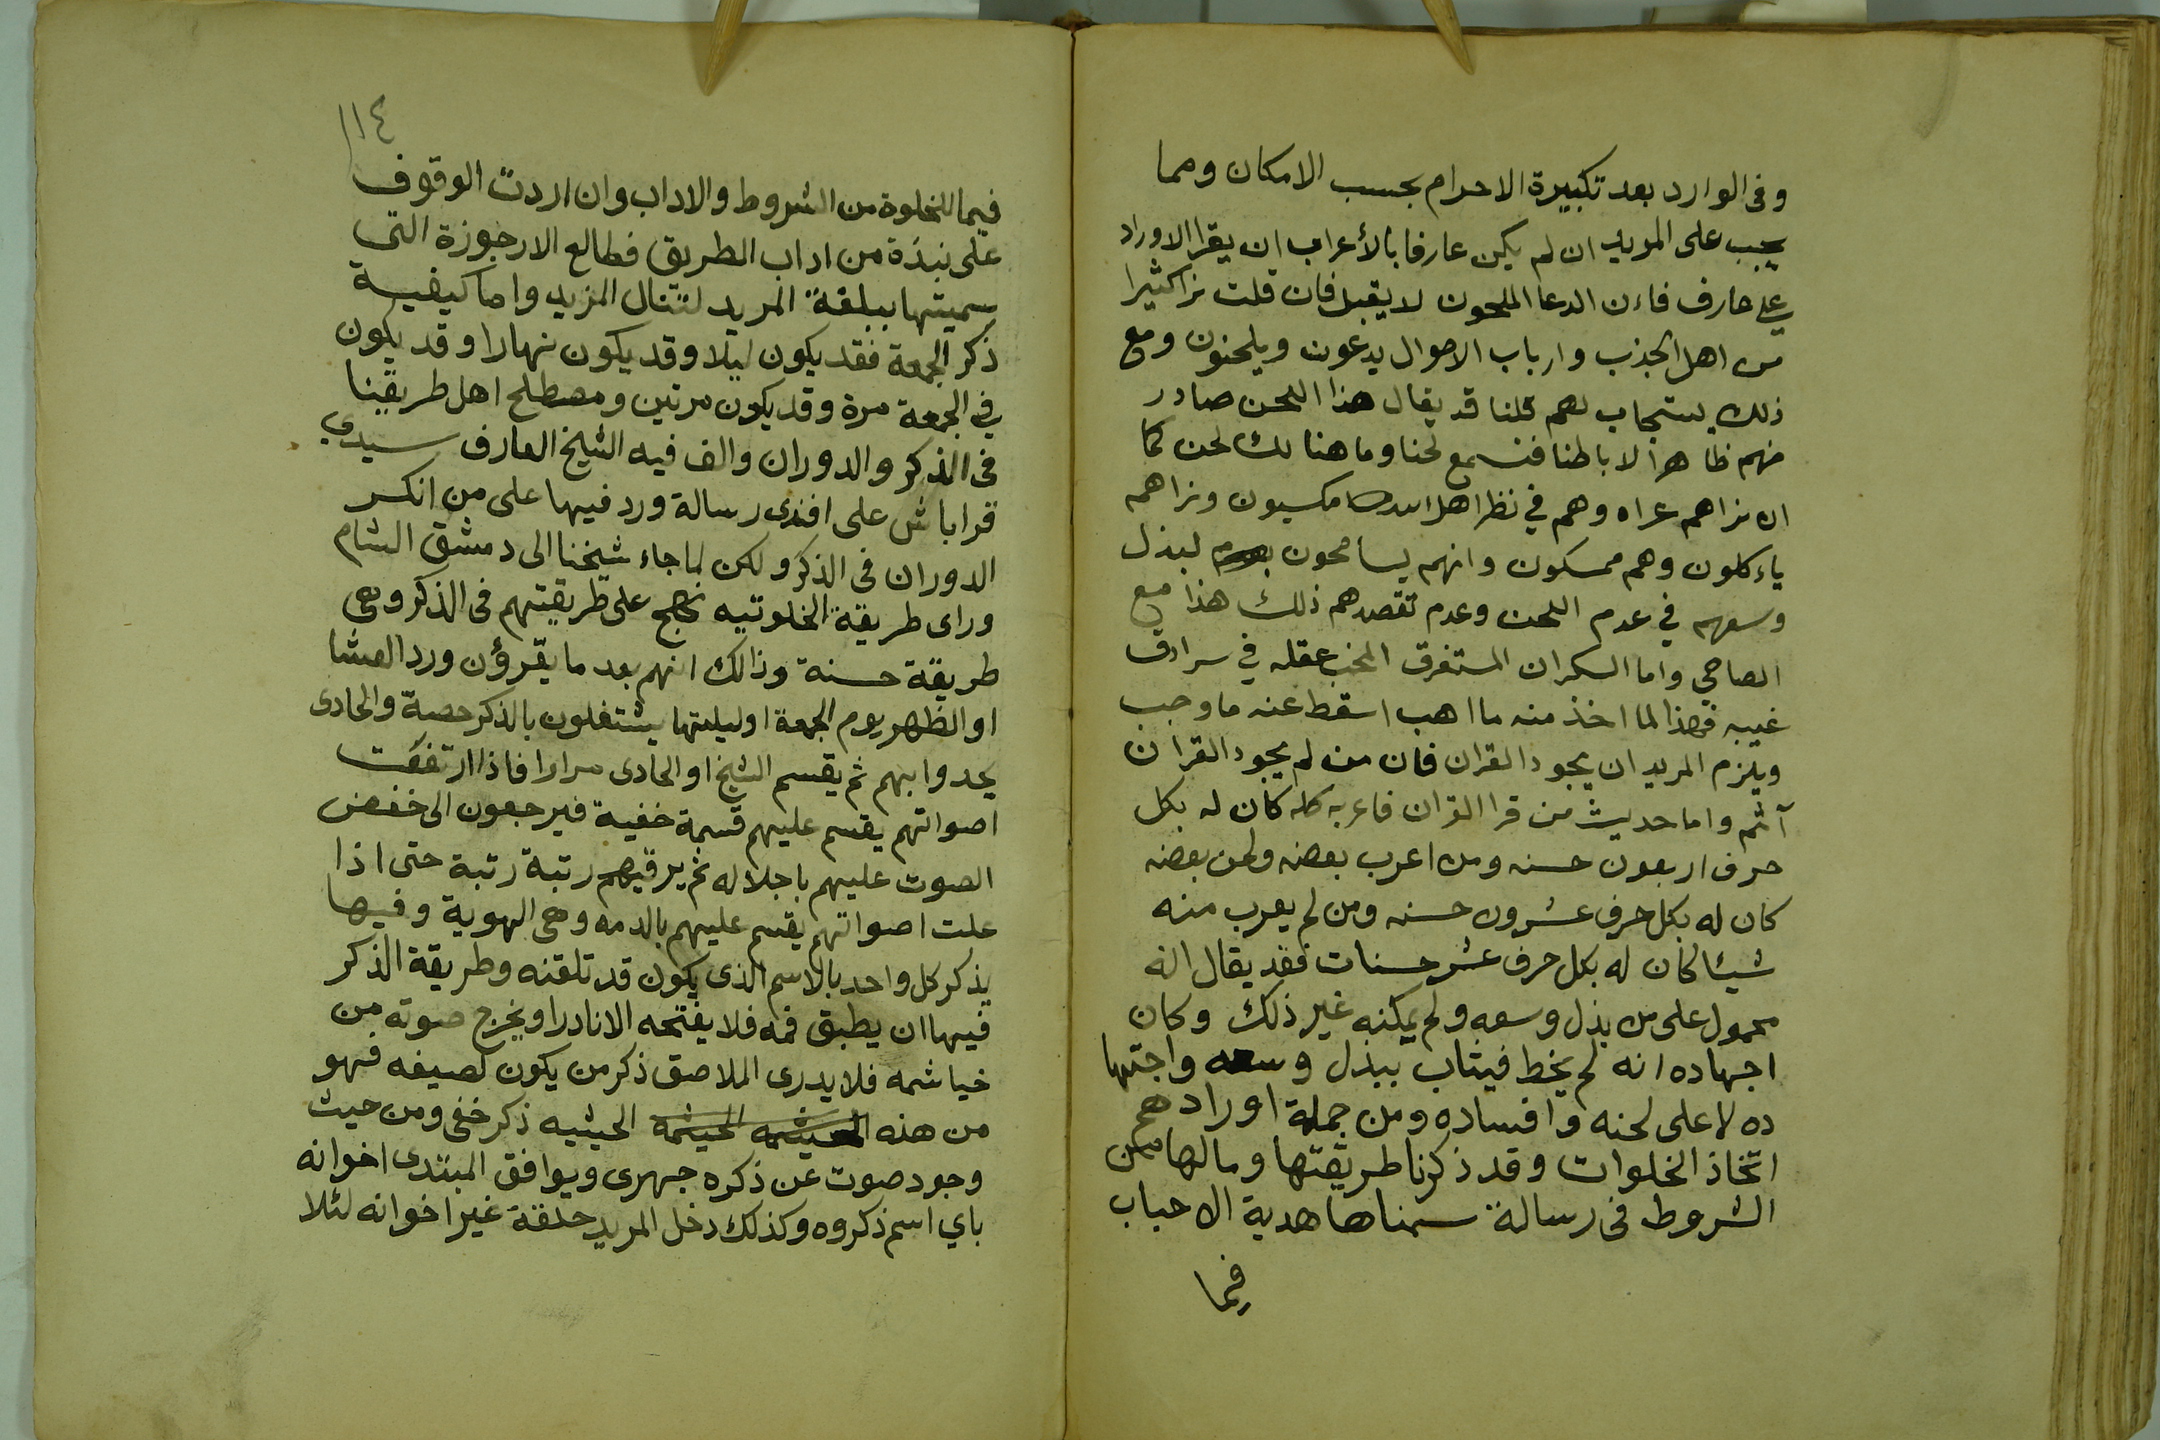 وفى الوارد بعد تكبيرة الاحرام بحسب الامكان ومما
يجب على المريد ان لم يكن عارفا بالأعراب ان يقرا الاوراد
على عارف فاءن الدعا الملحون لا يقبل فان قلت نراكثيرا
من اهل الجذب وارباب الاحوال يدعون ويلحنون ومع
ذلك يستجاب لهم قلنا قد يقال هذا اللحن صادر
منهم ظاهرا لا باطنا فنسمع لحنا وما هنالك لحن كما
ان نراهم عراه وهم في نظر اهل الله مكسيون ونراهم
ياءكلون وهم ممسكون وانهم يسامحون لبذل
وسعهم في عدم اللحن وعدم تقصدهم ذلك هذا مع
الصاحي واما السكران المستغرق المخب عقله في سرادق
غيبه فهذا لما اخذ منه ما اهب اسقط عنه ما وجب
ويلزم المريد ان يجود القران فان من لم يجود القران
آثم واما حديث من قرا القران فاعربه كله كان له بكل
حرف اربعون حسنه ومن اعرب بعضه ولحن بعضه
كان له بكل حرف عشرون حسنه ومن لم يعرب منه
شيئا كان له بكل حرف عشر حسنات فقد يقال انه
محمول على من بذل وسعه ولم يمكنه غير ذلك وكان
اجهاده انه لم يخط فيثاب ببذل وسعه واجتها
ده لا على لحنه وافساده ومن جملة اورادهم
اتخاذ الخلوات وقد ذكرنا طريقتها وما لها من
الشروط فى رسالة سمناها هدية الاحباب
فيما
١١٤
فيما للخلوة من الشروط والاداب وان اردت الوقوف
على نبذة من اداب الطريق فطالع الارجوزة التى
سميتها ببلغة المريد لتنال المزيد واما كيفية
ذكر الجمعة فقد يكون ليلا وقد يكون نهارا وقد يكون
في الجمعة مرة وقد يكون مرتين ومصطلح اهل طريقنا
فى الذكر والدوران والف فيه الشيخ العارف سيدي
قراباش على افندى رسالة ورد فيها على من انكر
الدوران فى الذكر ولكن لما جاء شيخنا الى دمشق الشام
وراى طريقة الخلوتيه نهج على طريقتهم فى الذكر وهى
طريقة حسنة وذالك انهم بعد ما يقرؤن ورد العشا
او الظهر يوم الجمعة او ليلتها يشتغلون بالذكر حصة والحادى
يحدوا بهم ثم يقسم الشيخ او الحادى مرارا فاذا ارتفعت
اصواتهم يقسم عليهم قسمة خفية فيرجعون الى خفض
الصوت عليهم باجلاله ثم يرقيهم رتبة رتبة حتى اذا
علت اصواتهم يقسم عليهم بالدمه وهى الهوية وفيها
يذكر كل واحد بالاسم الذى يكون قد تلقنه وطريقة الذكر
فيها ان يطبق فمه فلا يفتحه الا نادرا ويخرج صوته من
خياشمه فلا يدرى الملاصق ذكر من يكون لصيفه فهو
من هذه الحيثيه ذكر خفى ومن حيث
وجود صوت عن ذكره جهرى ويوافق المبتدى اخوانه
باي اسم ذكروه وكذلك دخل المريد حلقة غير اخوانه لئلا